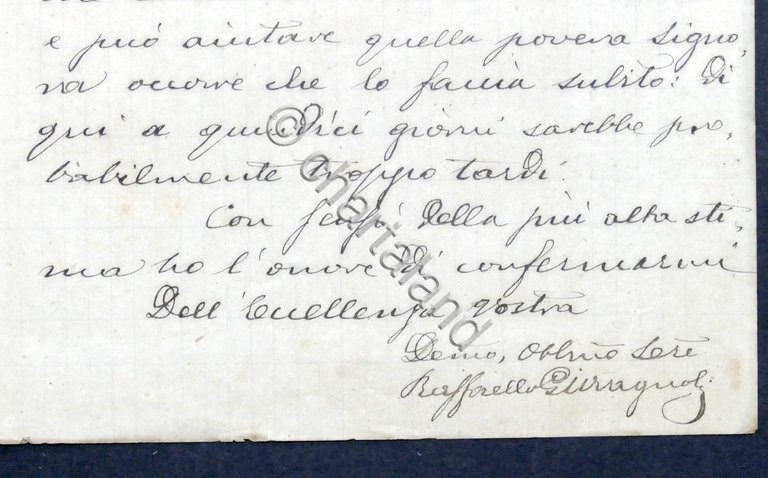 e può aiutare quella povera signo,
ra occorre che lo faccia subito: Di
qui a quindici giorni sarebbe pro,
babilmente troppo tardi.
Con sensi della più alta sti,
ma ho l'onore di confermarmi
Dell'Eccellenza Vostra
Demo, Obblmo
Raffaello
© chartaland